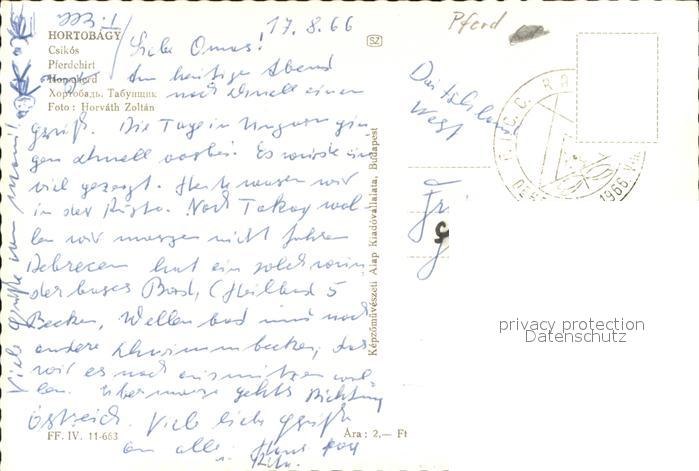 17.8.66
Pferd
HORTOBÁGY
Csikós
Pferdehirt
Хортобадь. Табунщик
Foto : Horváth Zoltán
SZ
Liebe Omas!
Am heutigen Abend
noch schnell einen
Gruß. Die Tage in Ungarn gin-
gen schnell vorbei. Es wurde uns
viel gezeigt. Heute waren wir
in der Pußta. Nach Tokay wol-
len wir morgen nicht fahren
Debrecen hat ein
Bad, (Heilbad 5
Becken, Wellenbad und noch
andere Schwimmbecken, daß
wir es noch ausnützen wol-
len. Übermorgen gehts Richtung
Östreich. Viele liebe Grüße
an alle
Viele Grüße von
Deutschland
West
Képzőművészeti Alap Kiadóvállalata, Budapest
F.I.C.C.
1966 VIII.
privacy protection
Datenschutz
FF. IV. 11-663
Ára : 2,— Ft